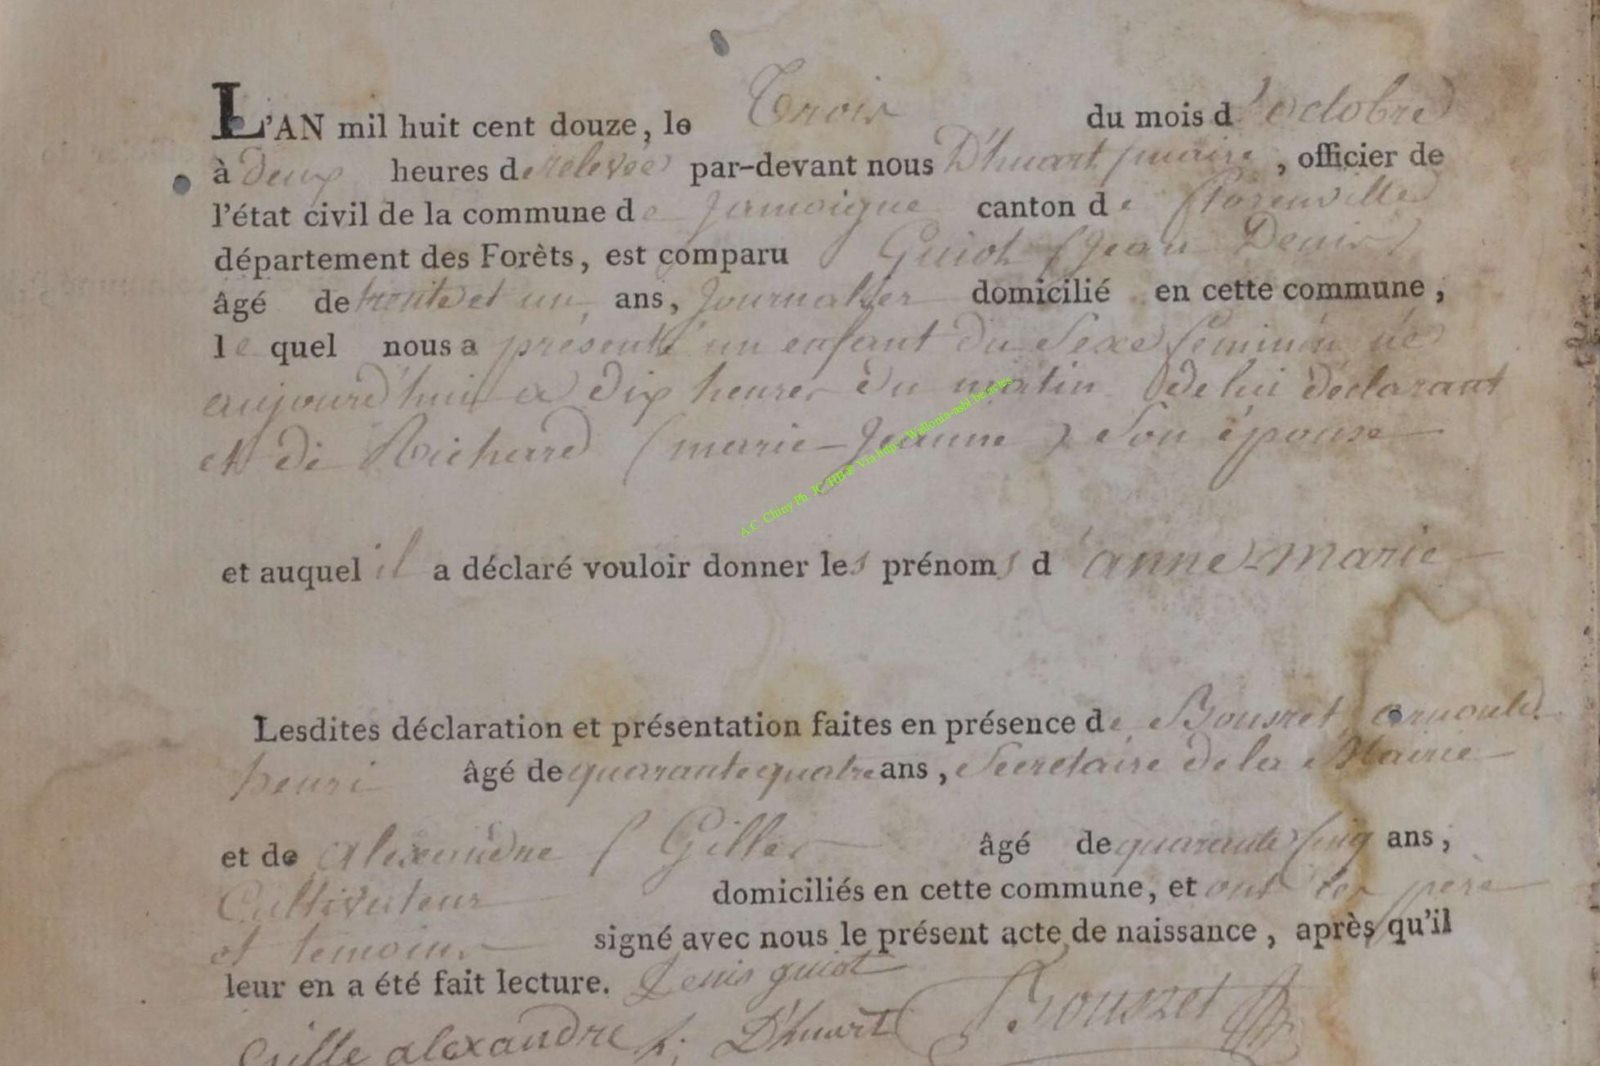 L'AN mil huit cent douze, le Trois du mois d'octobre
à deux heures de relevée par-devant nous D'huart maire, officier de
l'état civil de la commune de Jamoigne canton de florenville
département des Forêts, est comparu Guiot (Jean Denis)
âgé de trente et un ans, Journalier domicilié en cette commune,
lequel nous a présenté un enfant du Sexe feminin né
aujourd'hui a dix heures du matin de lui déclarant
et de Richard (marie-Jeanne) Son épouse
A.C. Chiny Ph. JC. HB® Via http:// Wallonia-asbl.be
et auquel il a déclaré vouloir donner les prénoms d'anne-Marie
Lesdites déclaration et présentation faites en présence de Bousret arnould
henri âgé de quarante quatre ans, Secretaire de la Mairie
et de alexandre Gilles âgé de quarante cinq ans,
Cultivateur domiciliés en cette commune, et ont les père
et témoins signé avec nous le présent acte de naissance, après qu'il
leur en a été fait lecture. Denis guiot
Gille alexandre D'huart Bousret